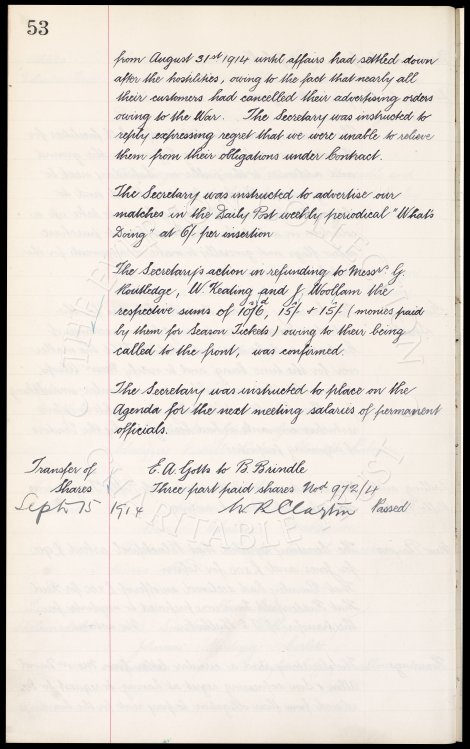 53
from August 31st 1914 until affairs had settled down
after the hostilities, owing to the fact that nearly all
their customers had cancelled their advertising orders
owing to the War. The Secretary was instructed to
reply expressing regret that we were unable to relieve
them from their obligations under Contract.
The Secretary was instructed to advertise our
matches in the Daily Post weekly periodical "What's
Doing" at 6/- per insertion
The Secretary's action in refunding to Messrs. G.
Routledge, W. Keating and J. Woollam the
respective sums of 10/6, 15/- + 15/- (monies paid
by them for Season Tickets) owing to their being
called to the front, was confirmed.
The Secretary was instructed to place on the
Agenda for the next meeting salaries of permanent
officials.
Transfer of E.A. Gotts to B. Brindle
Shares Three part paid shares Nos 972/4
Sept. 15 1914 W. R. Clayton Passed